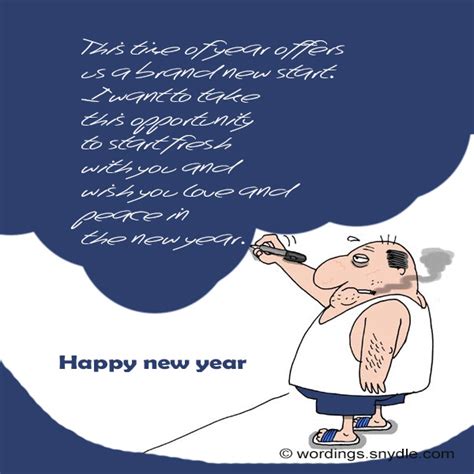 This time of year offers
us a brand new start.
I want to take
this opportunity
to start fresh
with you and
wish you love and
peace in
the new year.
Happy new year
© wordings.snydle.com